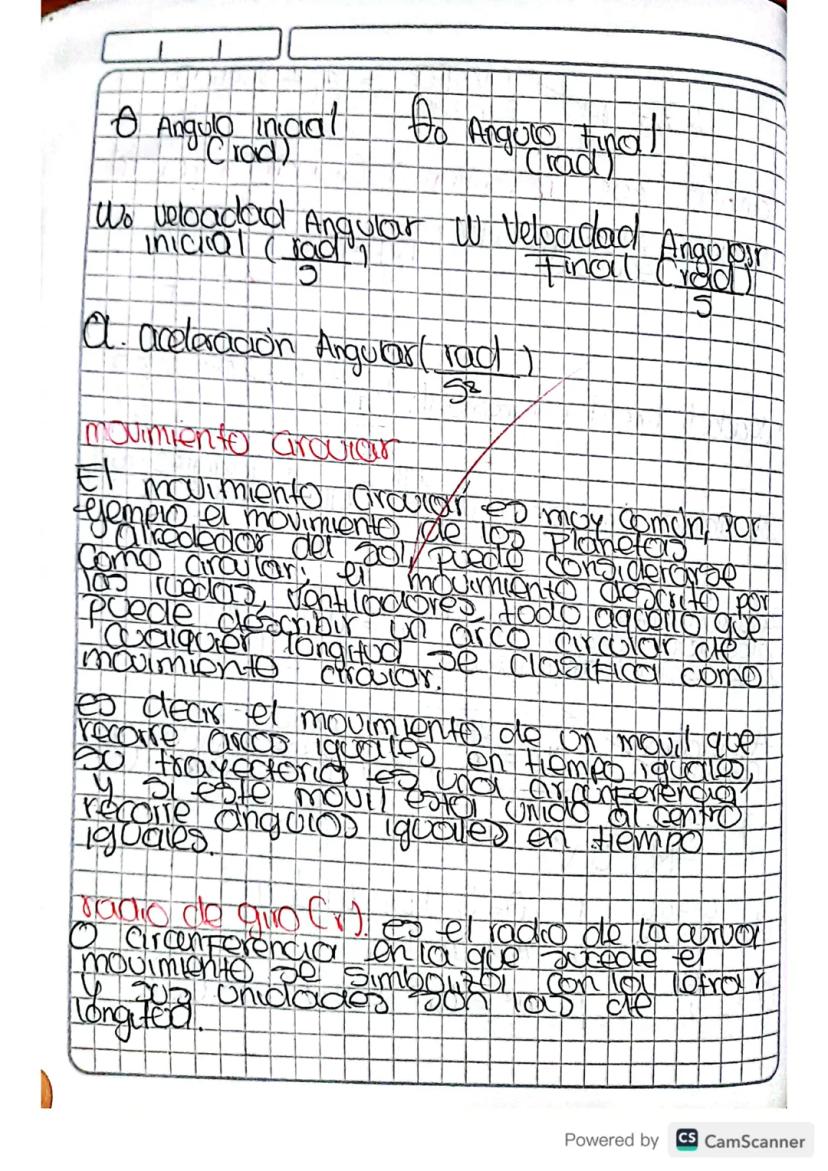 θ Angulo inicial θ₀ Angulo final
(rad) (rad)
W₀ velocidad Angular W Velocidad Angular
inicial (rad/s) final (rad/s)
a. aceleración Angular (rad/s²)
movimiento circular
El movimiento circular es muy común, por
ejemplo el movimiento de los Planetas
alrededor del sol, puede considerarse
como circular, el movimiento descrito por
las ruedas, ventiladores, todo aquello que
puede describir un arco circular de
cualquier longitud se clasifica como
movimiento circular.
es decir el movimiento de un movil que
recorre arcos iguales en tiempo iguales,
su trayectoria es una circunferencia
y si este movil esta unido al centro
recorre angulos iguales en tiempo
iguales.
radio de giro (r). es el radio de la curva
O circunferencia en la que sucede el
movimiento se simboliza con la letra r
y sus unidades son las de
longitud.
Powered by CS CamScanner